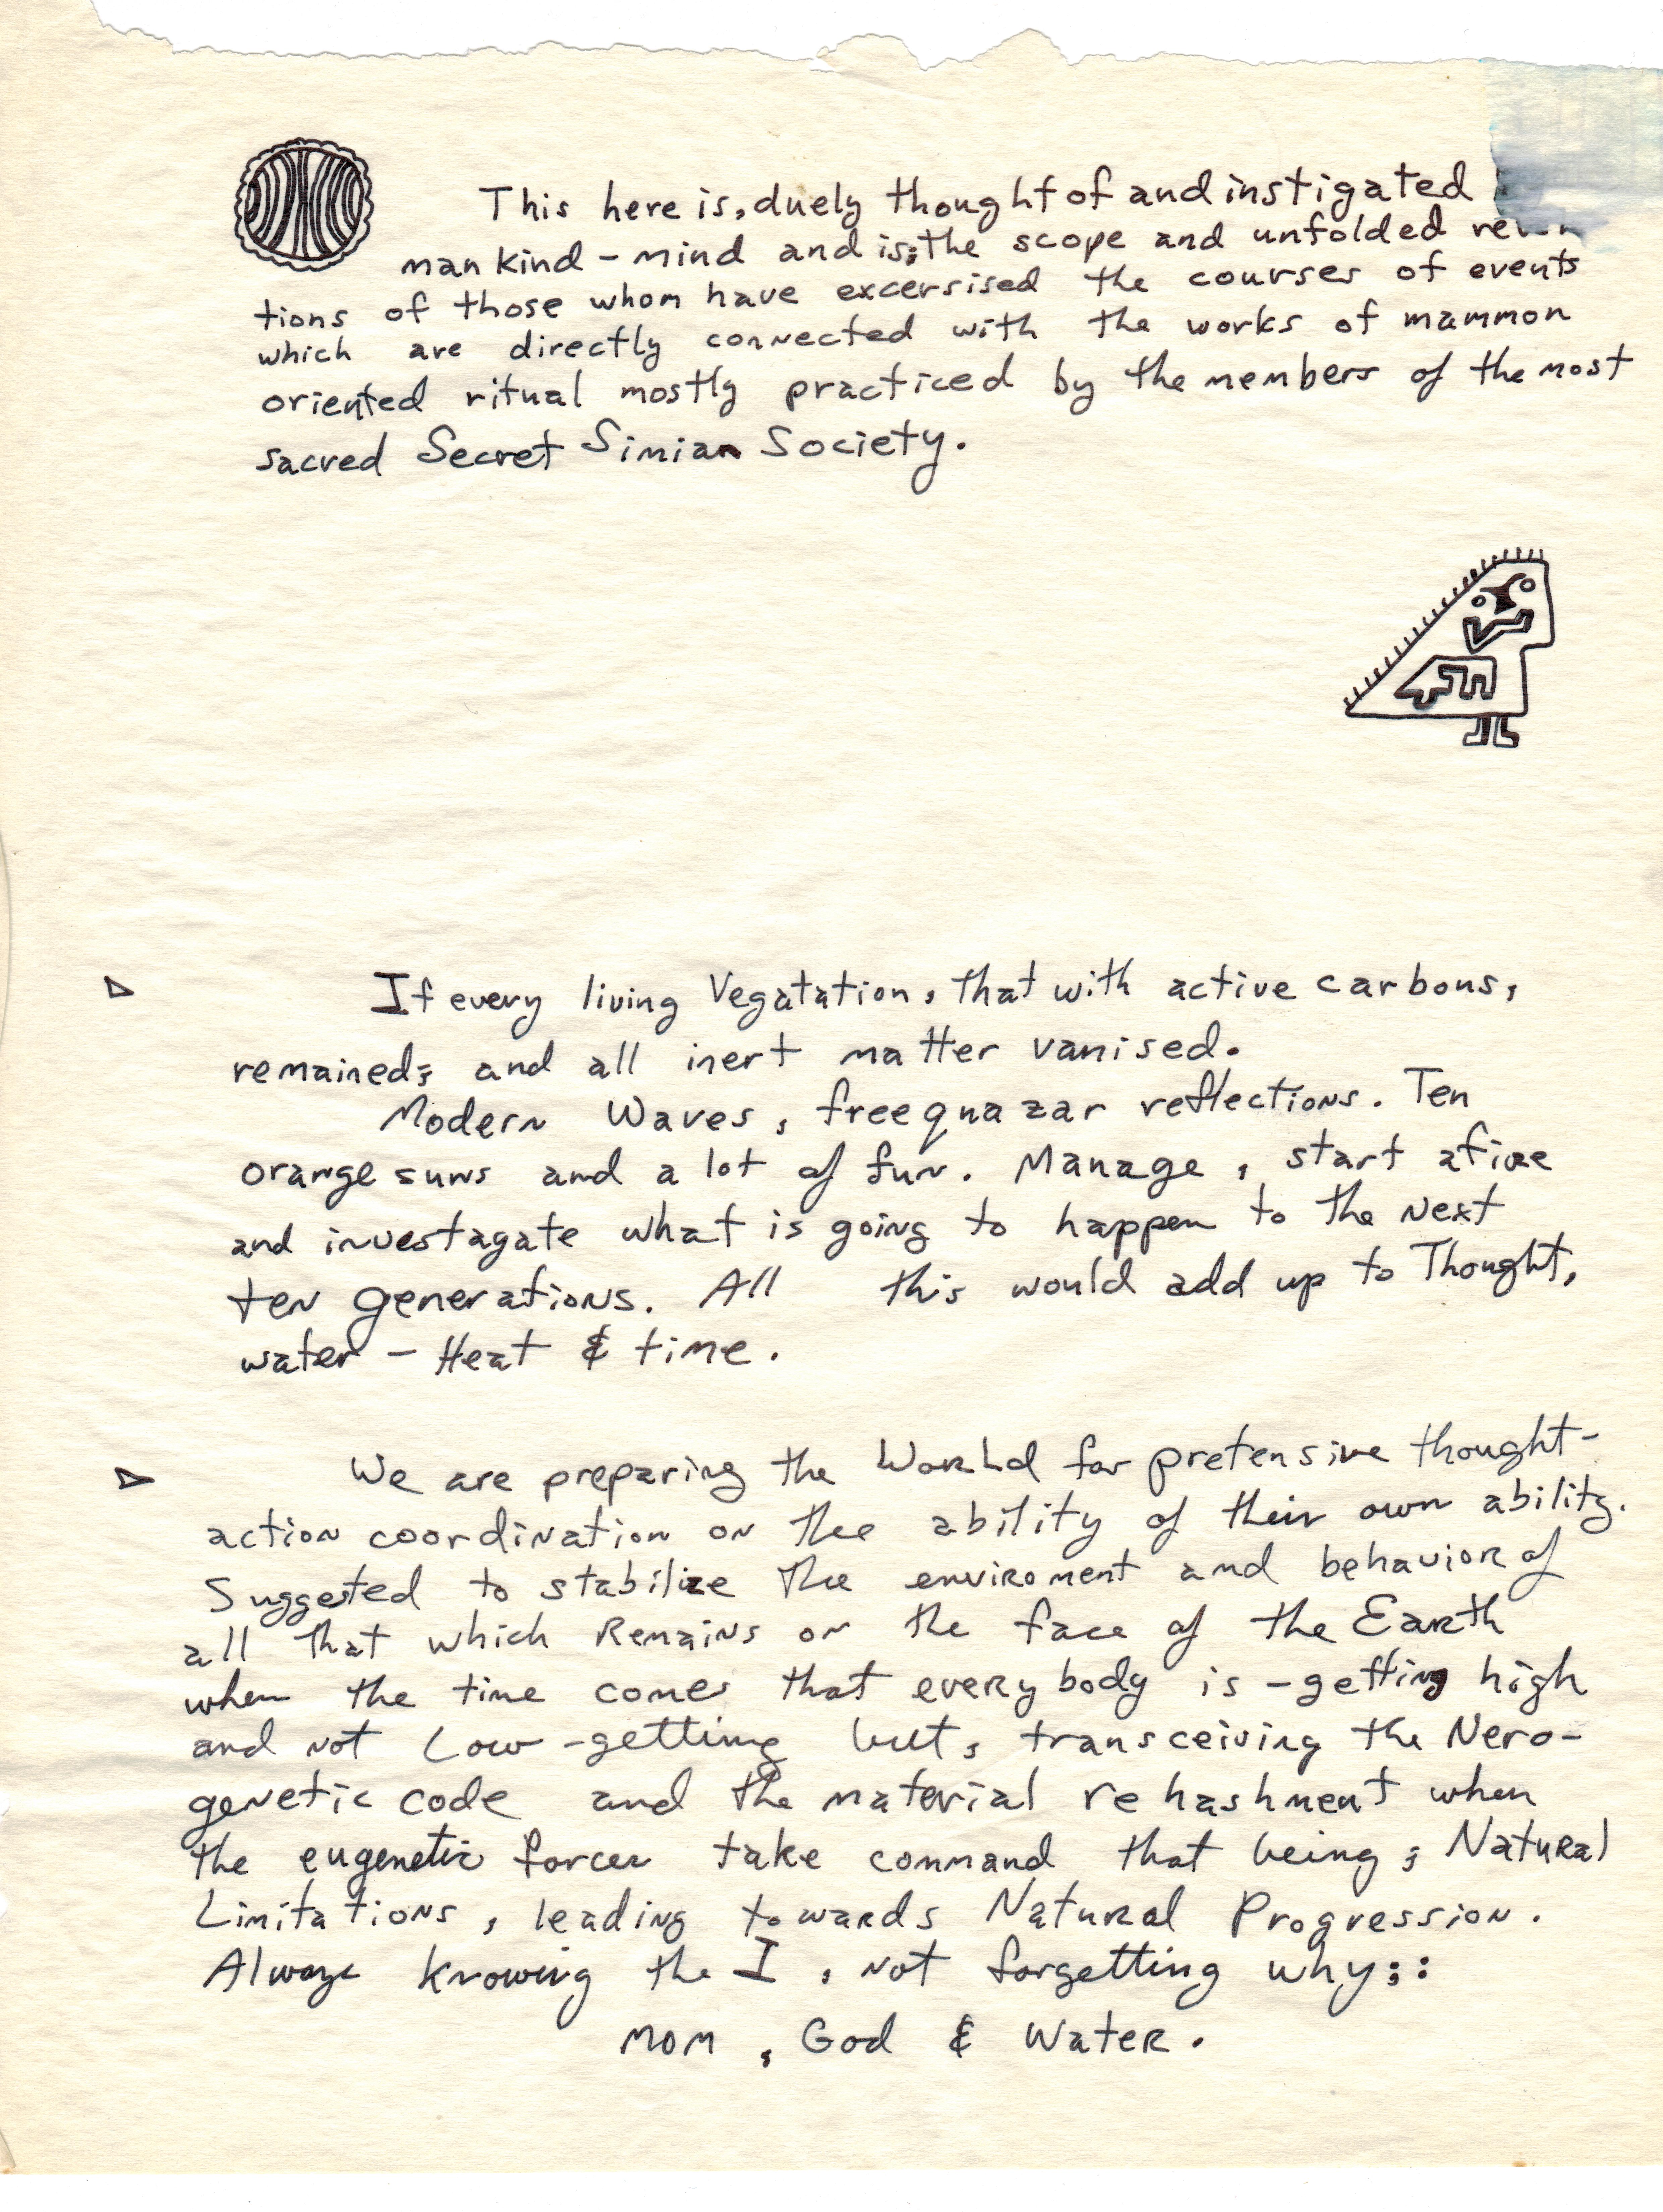 This here is, duely thought of and instigated
man kind - mind and is; the scope and unfolded
tions of those whom have excersised the courses of events
which are directly connected with the works of mammon
oriented ritual mostly practiced by the members of the most
sacred Secret Simian Society.
If every living Vegatation, that with active carbons,
remained; and all inert matter vanised.
Modern Waves, free qnazar reflections. Ten
orange suns and a lot of fun. Manage, start afire
and investagate what is going to happen to the Next
ten generations. All this would add up to Thought,
water - Heat & time.
We are preparing the World for pretensive thought-
action coordination on the ability of their own ability.
Suggested to stabilize the enviroment and behavior of
all that which Remains on the face of the Earth
when the time comes that every body is - getting high
and not Low - getting but, transceiving the Nero-
genetic code and the material re hashment when
the eugenetic forces take command that being; Natural
Limitations, leading towards Natural Progression.
Always knowing the I, not forgetting why;:
MOM, God & Water.